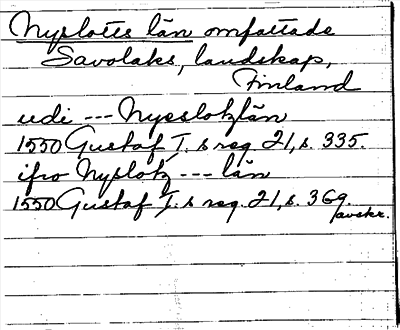 Nyslotts län omfattade
Savolaks, landskap,
Finland
udi --- Nyeslotzlän
1550 Gustaf I. s reg. 21, s. 335.
ifrå Nyslotz --- län
1550 Gustaf I. s reg. 21, s. 369.
avskr.